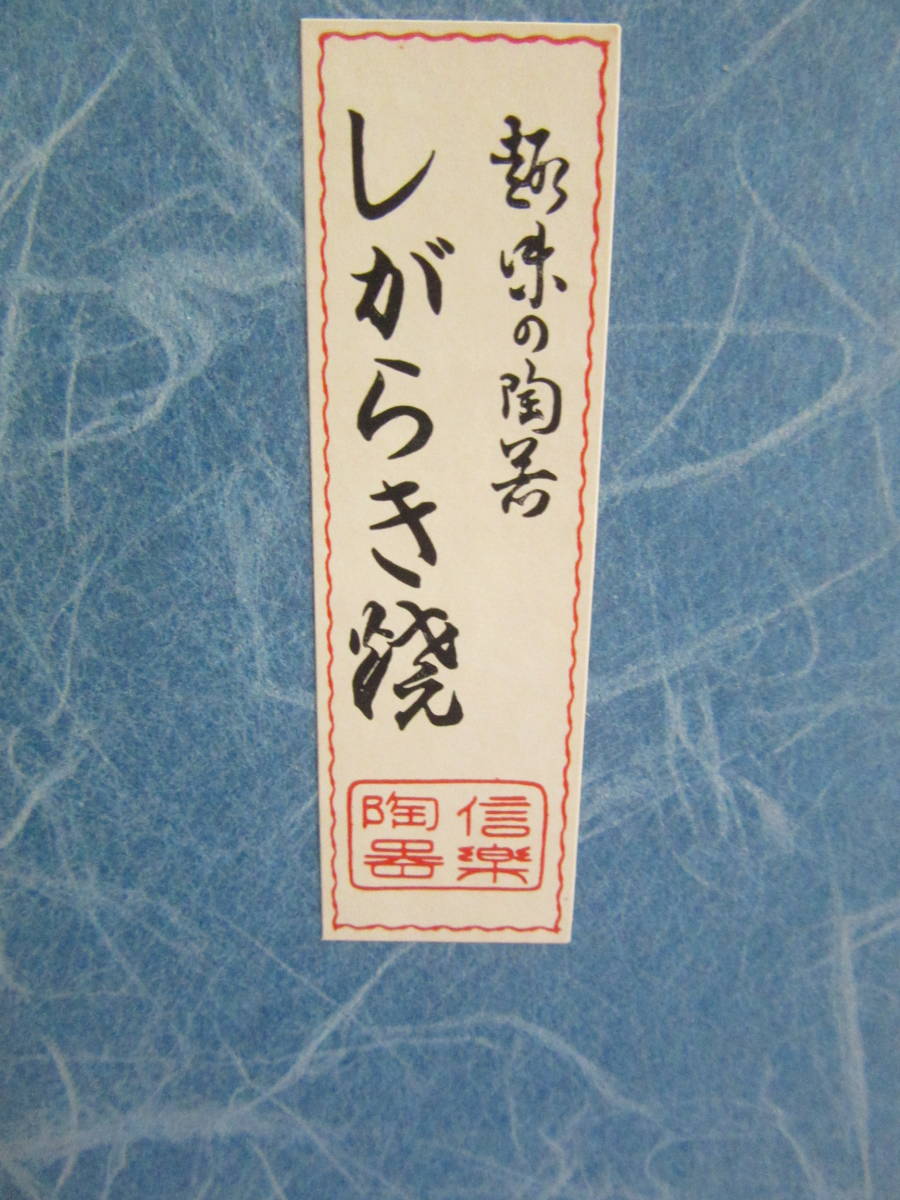 趣味の陶器
しがらき焼
信楽
陶器